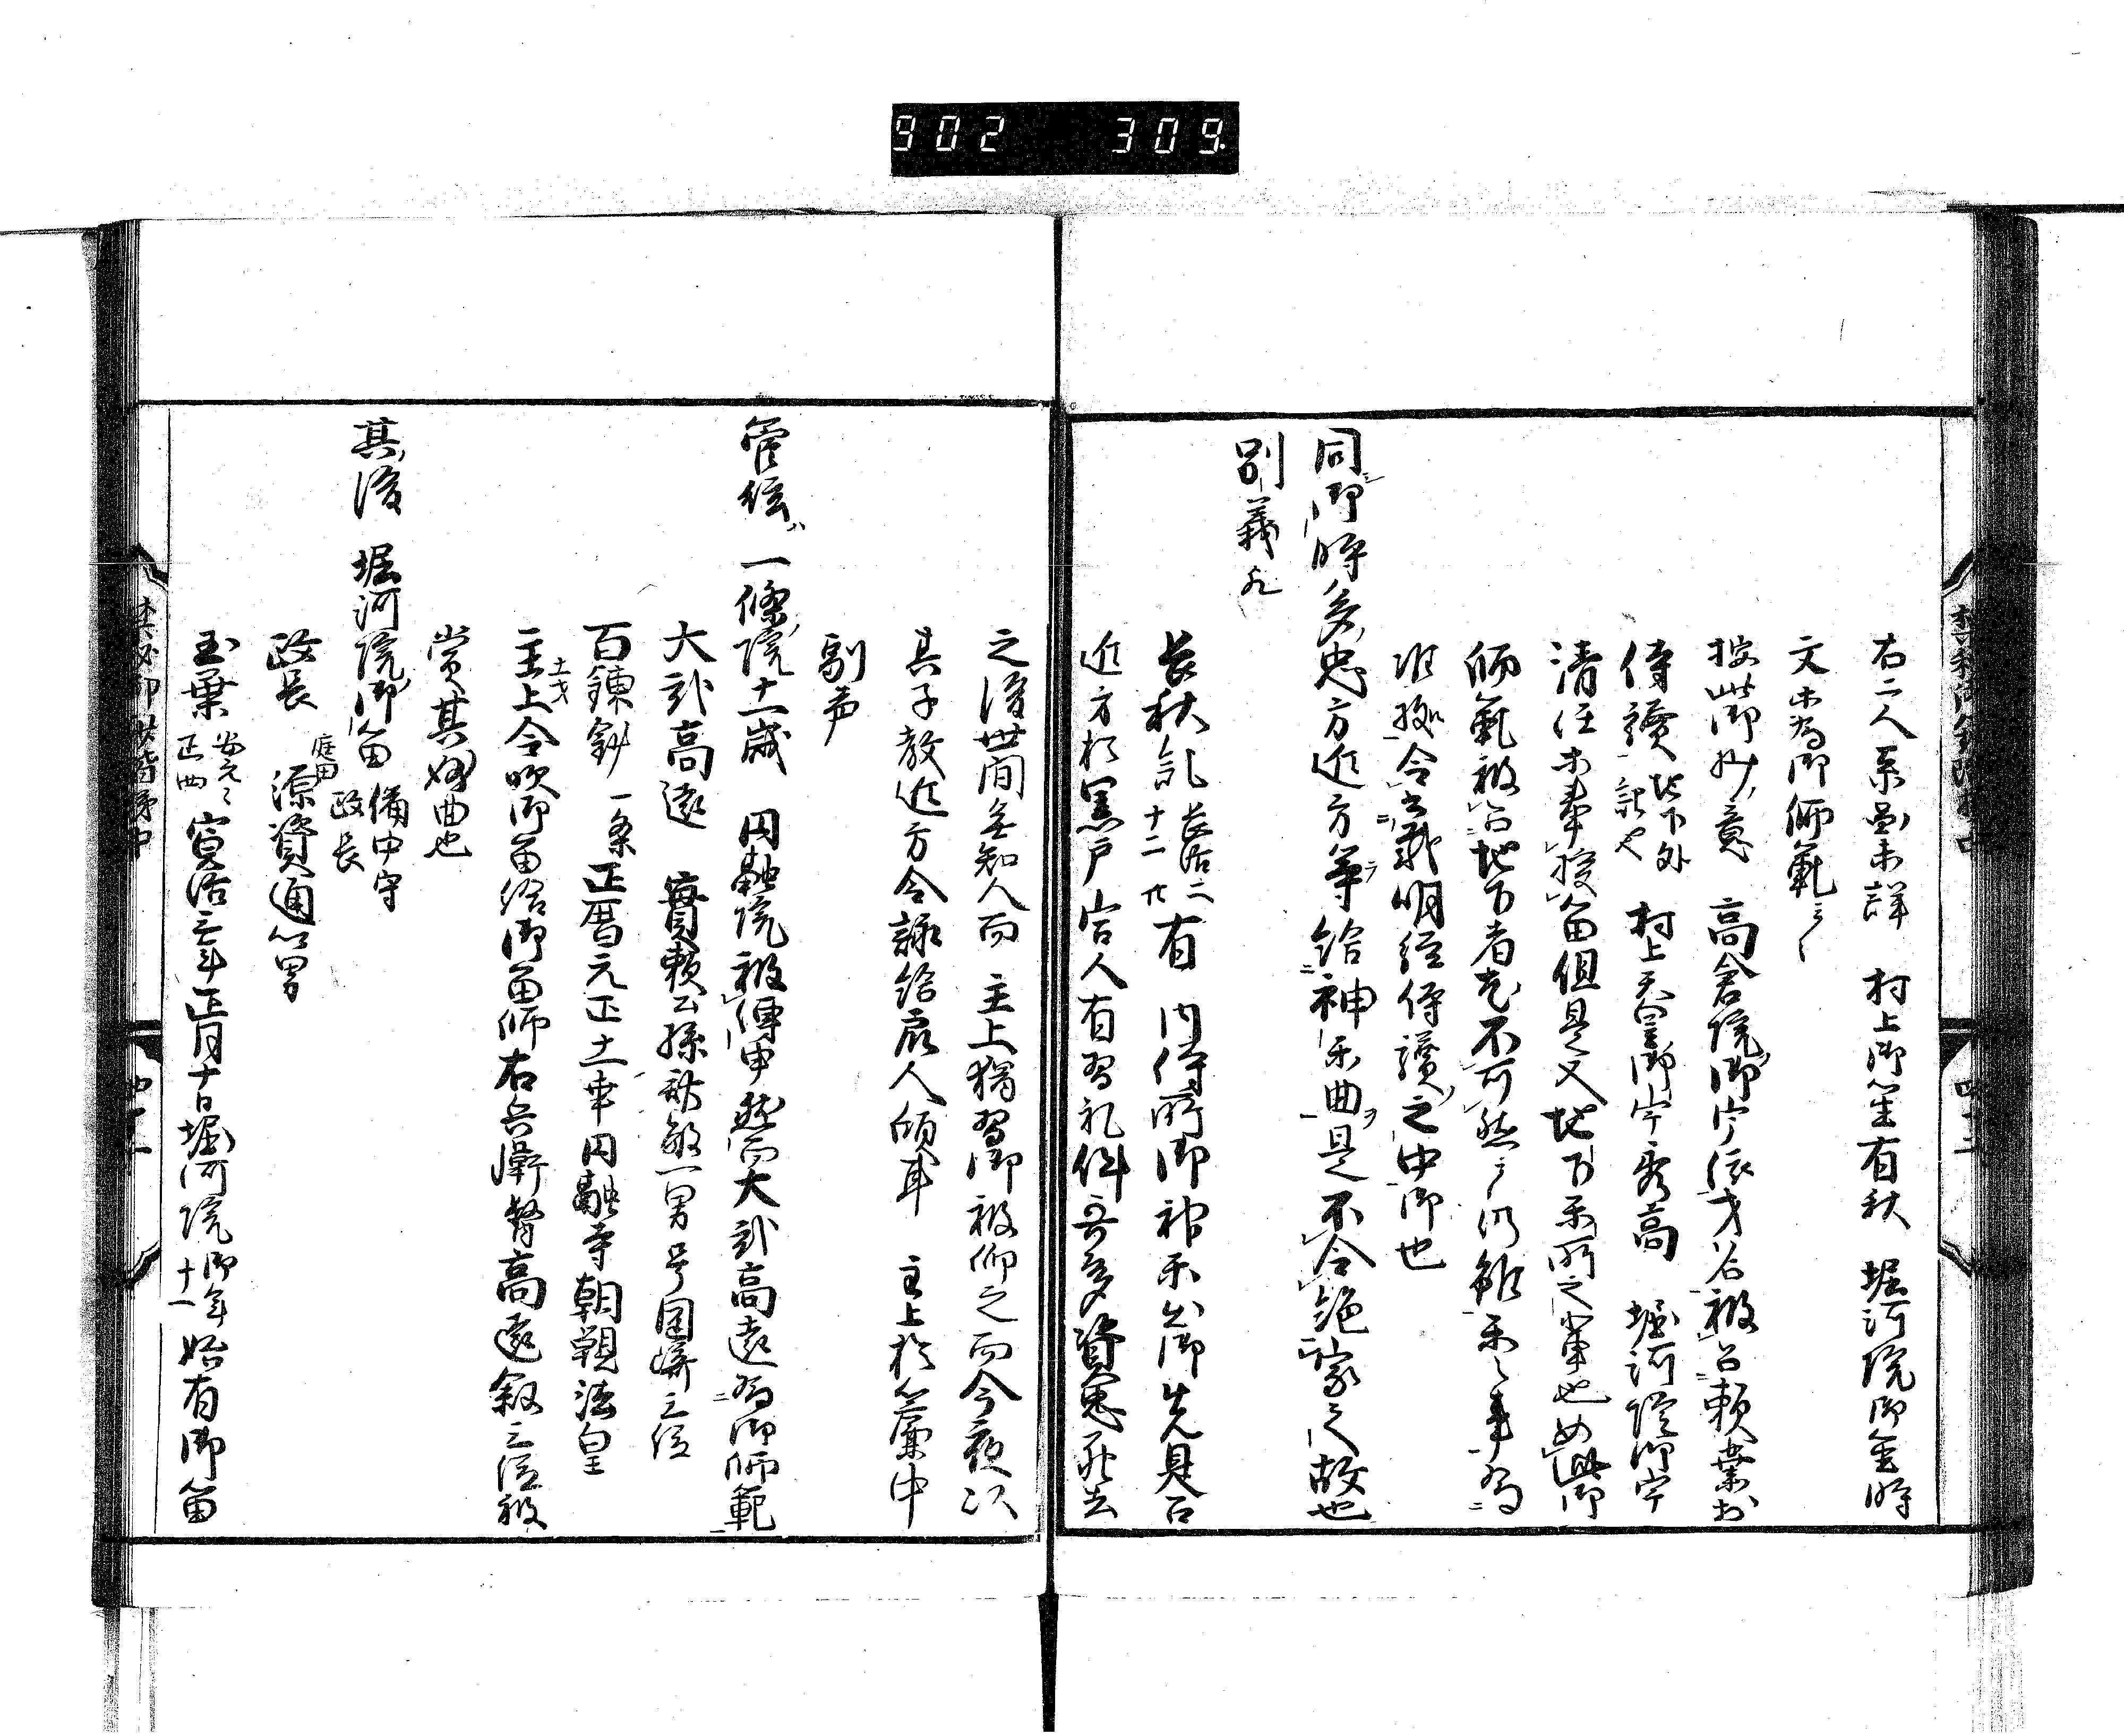 902 309.
右二人系図未詳 村上御笙有秋 堀河院御笙時
文未為御師範云々
按此御抄意 高倉院御宇依才名被召頼業於
侍読 地下外記也 村上天皇御宇秀高 堀河院御宇
清任等奉授笛但是又地下楽所之輩也如此御
師範被召地下者尤不可然云々仍雖楽之事為
准拠令載明経侍読之中御也
同御時多忠方近方等給神楽曲是不令絶家之故也
別義歟
長秋記 長治二 十二 廿 有 内侍所御神楽出御先是召
近方於黒戸官人有習礼件哥多資忠死去
之後世間無知人而 主上独習御被仰之而今夜以
其子教近方令謡給衆人傾耳 主上於簾中
副声
管絃 一條院十一歳 円融院被伝申然而大弐高遠為御師範
大弐高遠 実頼公孫斎敏一男号国井三位
百錬鈔 一条正暦元正十一幸円融寺朝覲法皇
主上 十一才 令吹御笛給御笛師右兵衛督高遠叙三位被
賞其妙曲也
其後 堀河院御笛 備中守政長
政長 庭田 源資通公男
玉葉 安元三 正四 寛治三年正月十日堀河院 御年十一 始有御笛